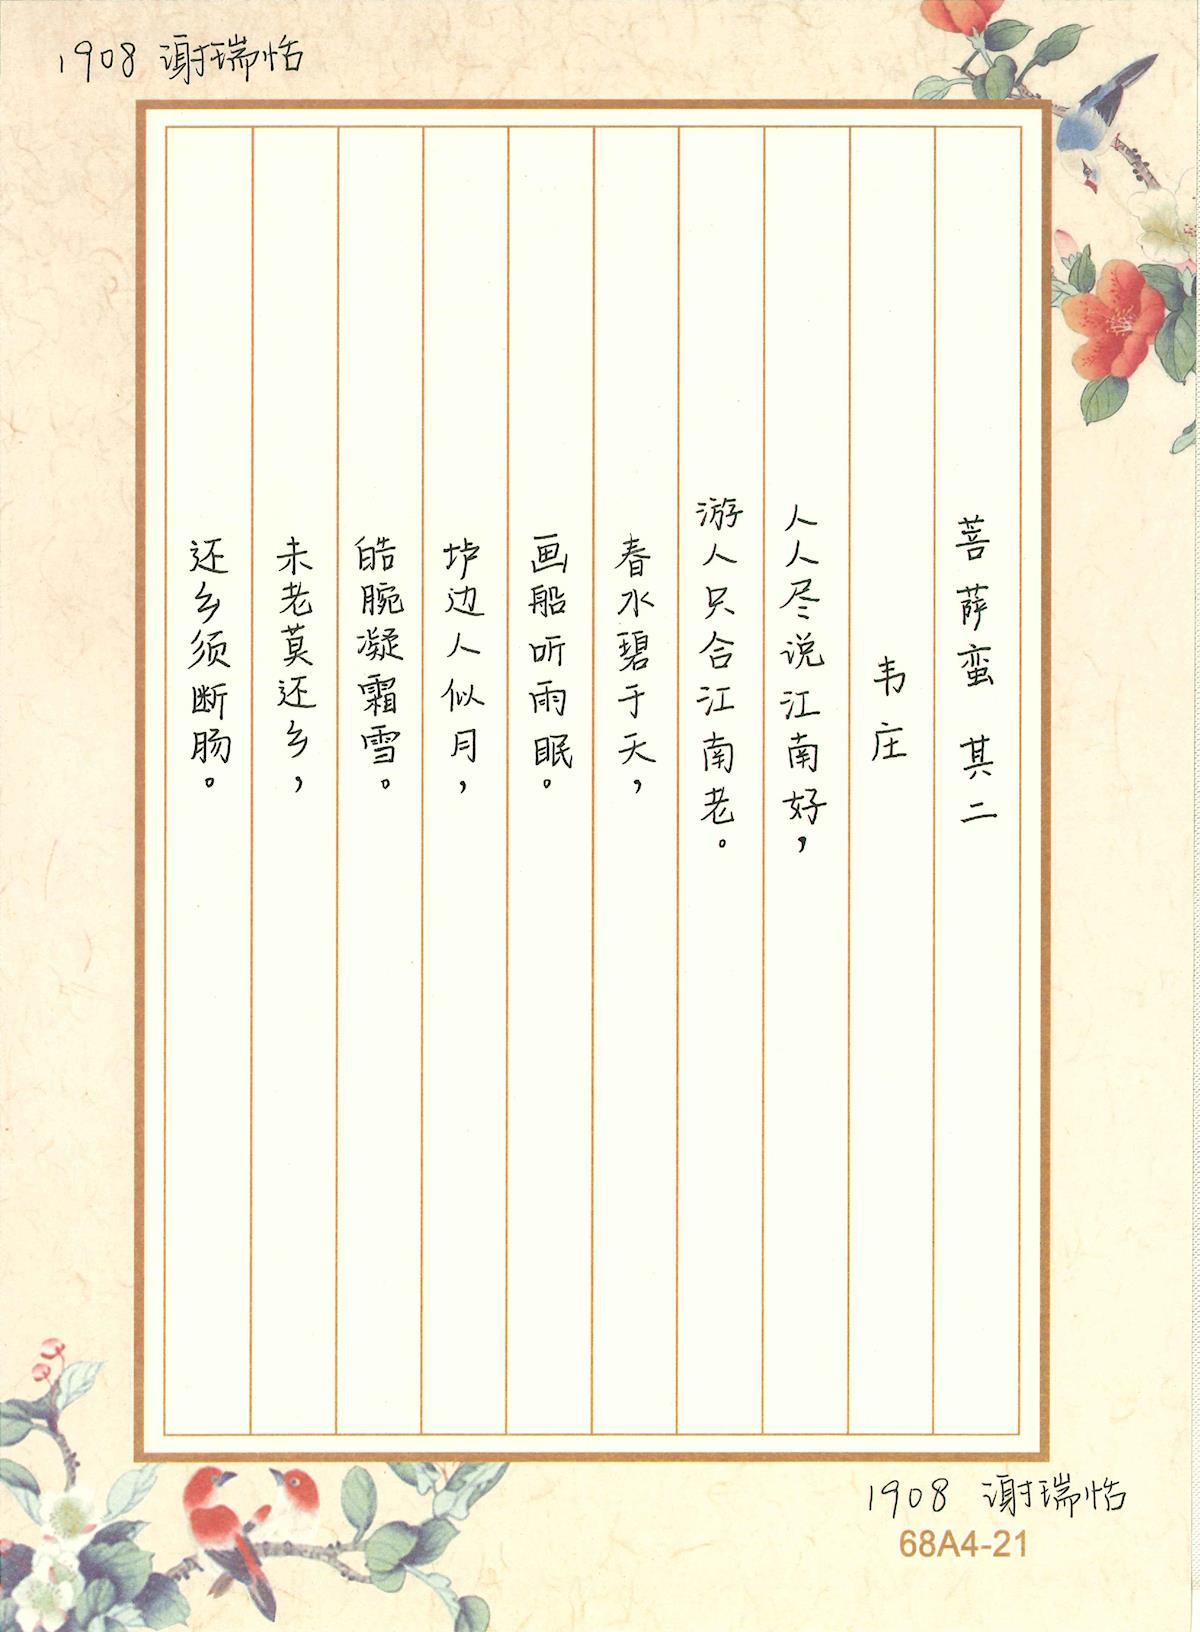 1908 谢瑞恬
菩萨蛮 其二
韦庄
人人尽说江南好，
游人只合江南老。
春水碧于天，
画船听雨眠。
垆边人似月，
皓腕凝霜雪。
未老莫还乡，
还乡须断肠。
1908 谢瑞恬
68A4-21